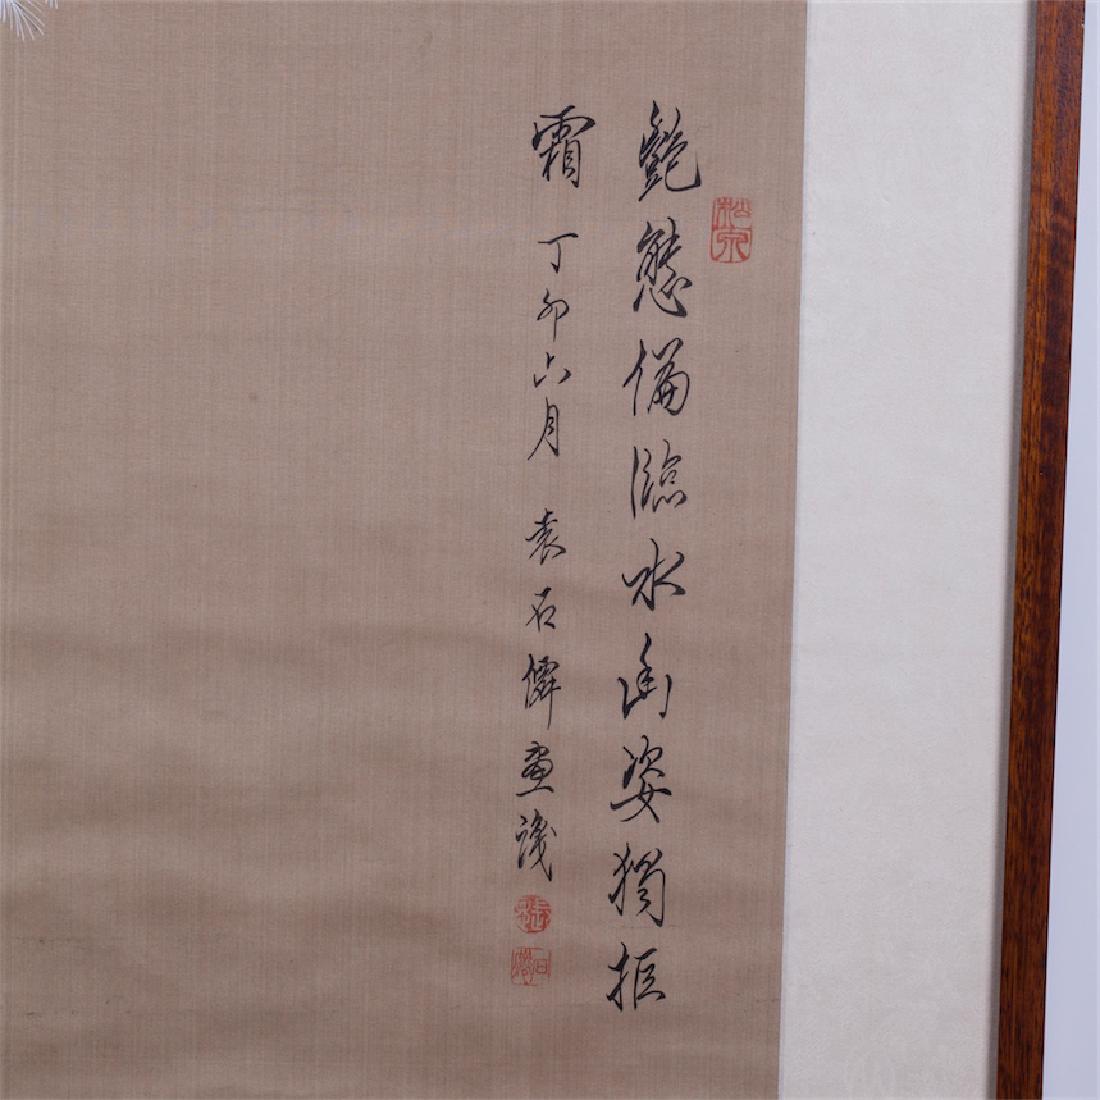 艷態偏臨水幽姿獨拒
霜 丁卯六月 袁石僊畫識